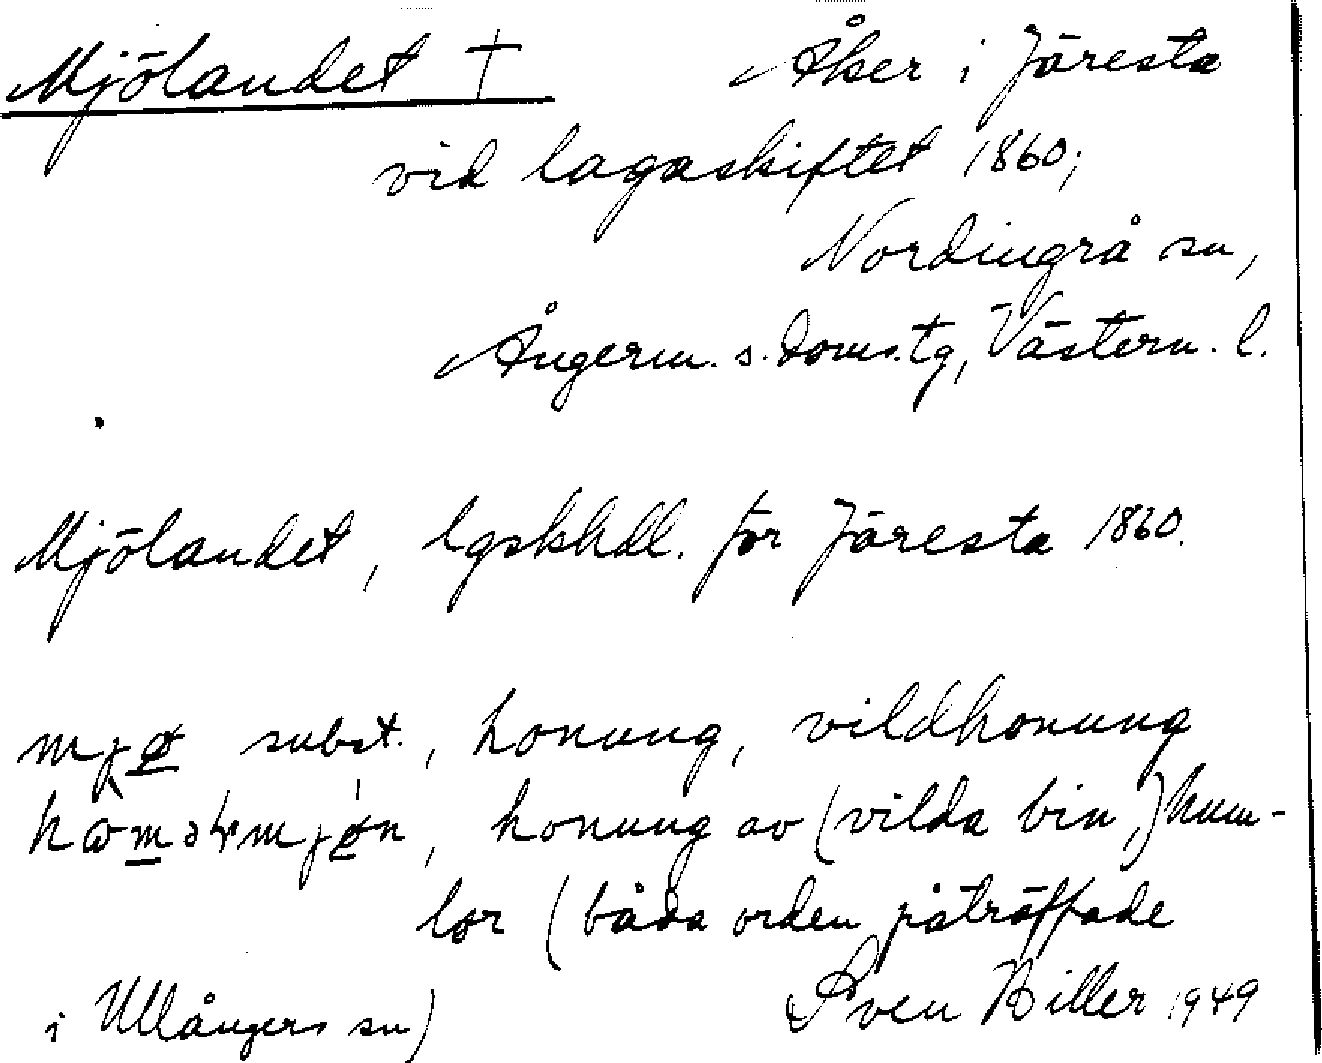 Mjölandet † Åker i Järesta
vid lagaskiftet 1860;
Nordingrå sn,
Ångerm. s. doms.tg, Västern. l.
Mjölandet, lgskhdl. för Järesta 1860.
mjø subst., honung, vildhonung
honung av (vilda bin,) hum-
lor (båda orden påträffade
i Ullångers sn) Sven Biller 1949